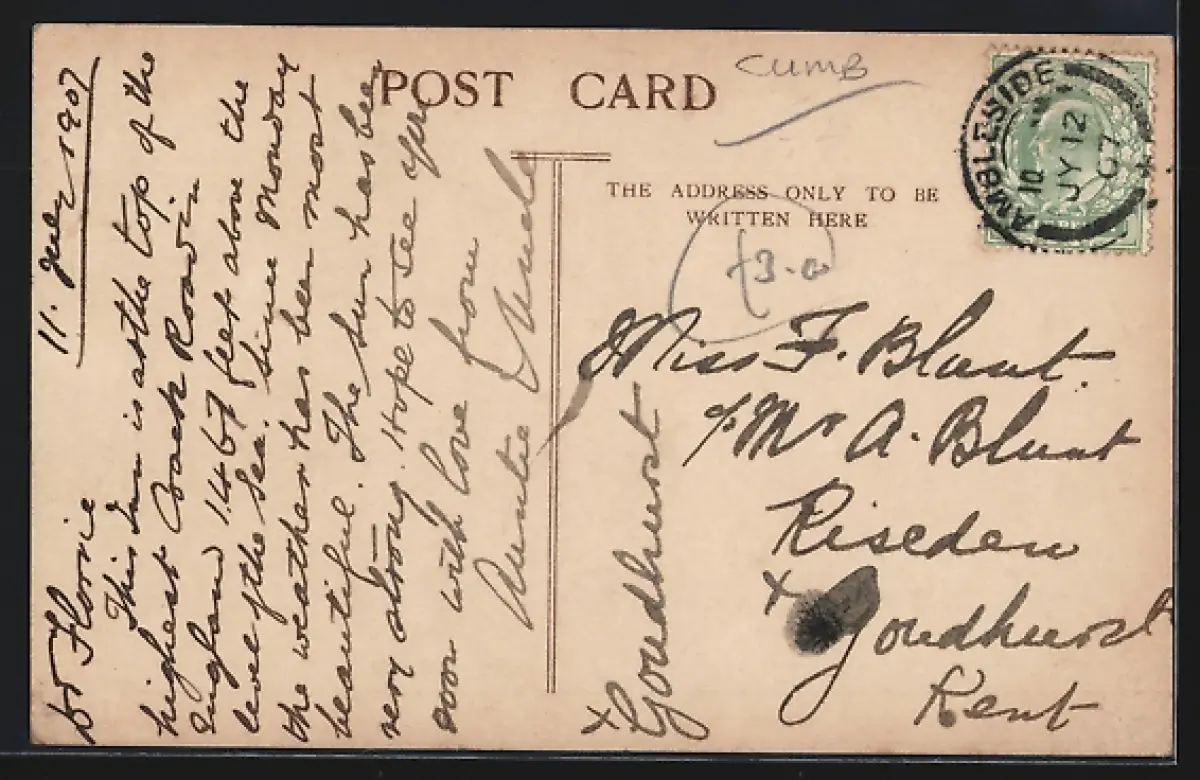 POST CARD
CUMB
THE ADDRESS ONLY TO BE
WRITTEN HERE
£3.00
AMBLESIDE
10
JY 12
07
11. July 1907
Dr Florrie
This Inn is at the top of the
highest Coach Road in
England 1467 feet above the
level of the sea. Since Monday
the weather has been most
beautiful. The sun has been
very strong. Hope to see you
soon with love from
Auntie & Uncle
Miss F. Blunt.
c/o Mr A. Blunt
Riseden
x Goudhurst
Kent
x Goudhurst